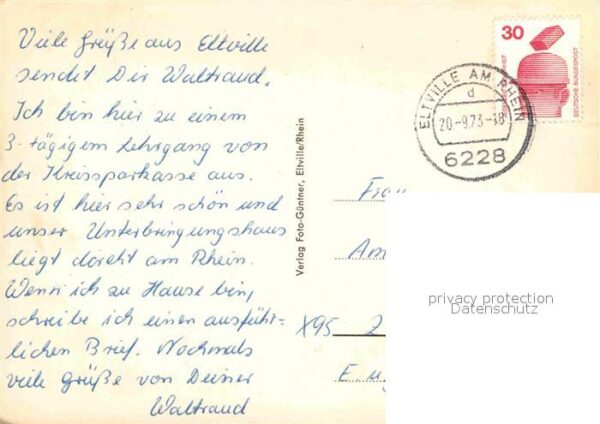 Viele Grüße aus Eltville
sendet Dir Waltraud.
Ich bin hier zu einem
3-tägigem Lehrgang von
der Kreissparkasse aus.
Es ist hier sehr schön und
unser Unterbringungshaus
liegt direkt am Rhein.
Wenn ich zu Hause bin,
schreibe ich einen ausführ-
lichen Brief. Nochmals
viele Grüße von Deiner
Waltraud
Verlag Foto-Güntner, Eltville/Rhein
30
DEUTSCHE BUNDESPOST
ELTVILLE AM RHEIN
d
20.-9.73-18
6228
Frau
Am
X95 2
privacy protection
Datenschutz